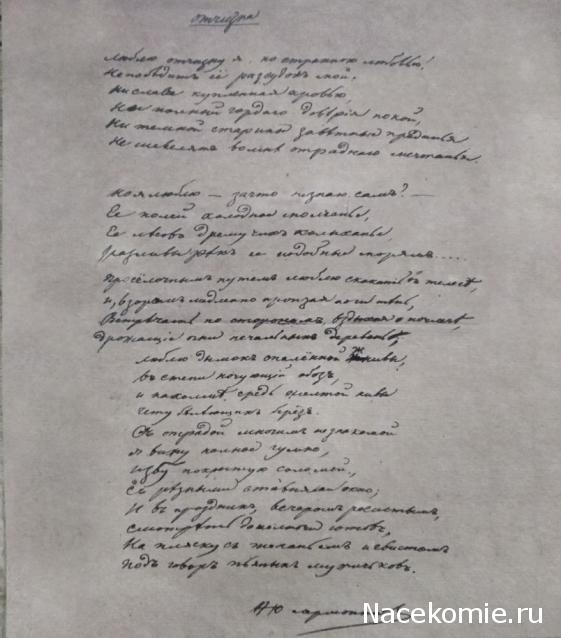 Отчизна
Люблю отчизну я, но странною любовью!
Не победитъ её разсудокъ мой.
Ни слава купленная кровью,
Ни полный гордаго довѣрія покой,
Ни темной старины завѣтныя преданья
Не шевелятъ во мнѣ отраднаго мечтанья.
Но я люблю — за что не знаю самъ? —
Ея полей холодное молчанье,
Ея лѣсовъ дремучихъ колыханье,
Разливы рѣкъ ея подобные морямъ....
Просёлочнымъ путемъ люблю скакать въ телегѣ,
И, взоромъ медленно пронзая ночи тѣнь,
Встрѣчать по сторонамъ, вздыхая о ночлегѣ,
Дрожащіе огни печальныхъ деревень;
Люблю дымокъ спалённой жнивы,
Въ степи ночующій обозъ,
И на холмѣ средь желтой нивы
Чету бѣлѣющихъ берёзъ.
Съ отрадой многимъ незнакомой
Я вижу полное гумно,
Избу покрытую соломой,
Съ рѣзными ставнями окно;
И въ праздникъ, вечеромъ росистымъ,
Смотрѣть до полночи готовъ,
На пляску съ топаньемъ и свистомъ
Подъ говоръ пьяныхъ мужичковъ.
Nacekomie.ru